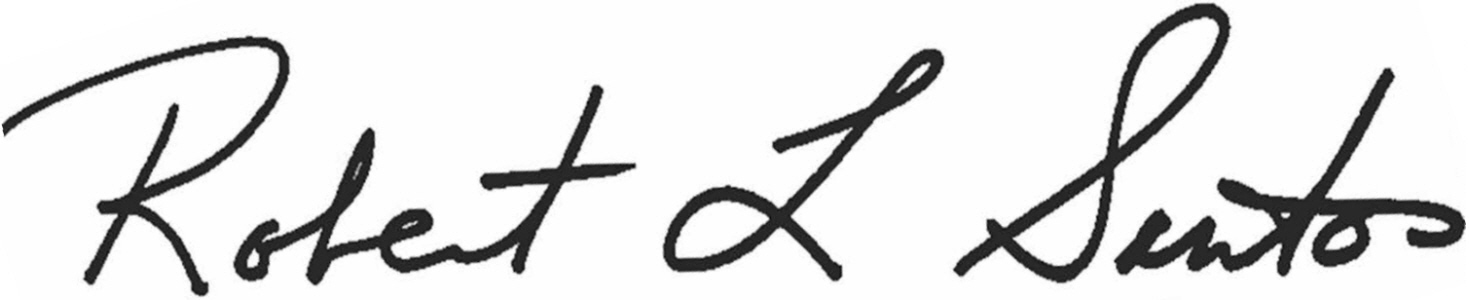 Robert L Santos